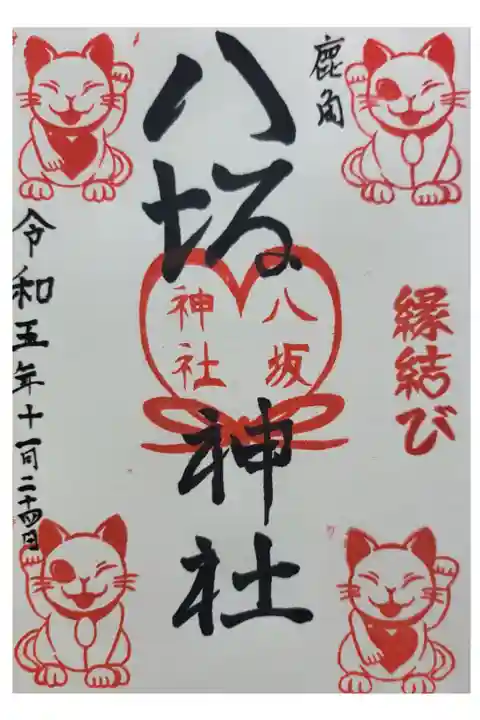 鹿角
縁結び
八坂神社
八坂
神社
令和五年十一月二十四日